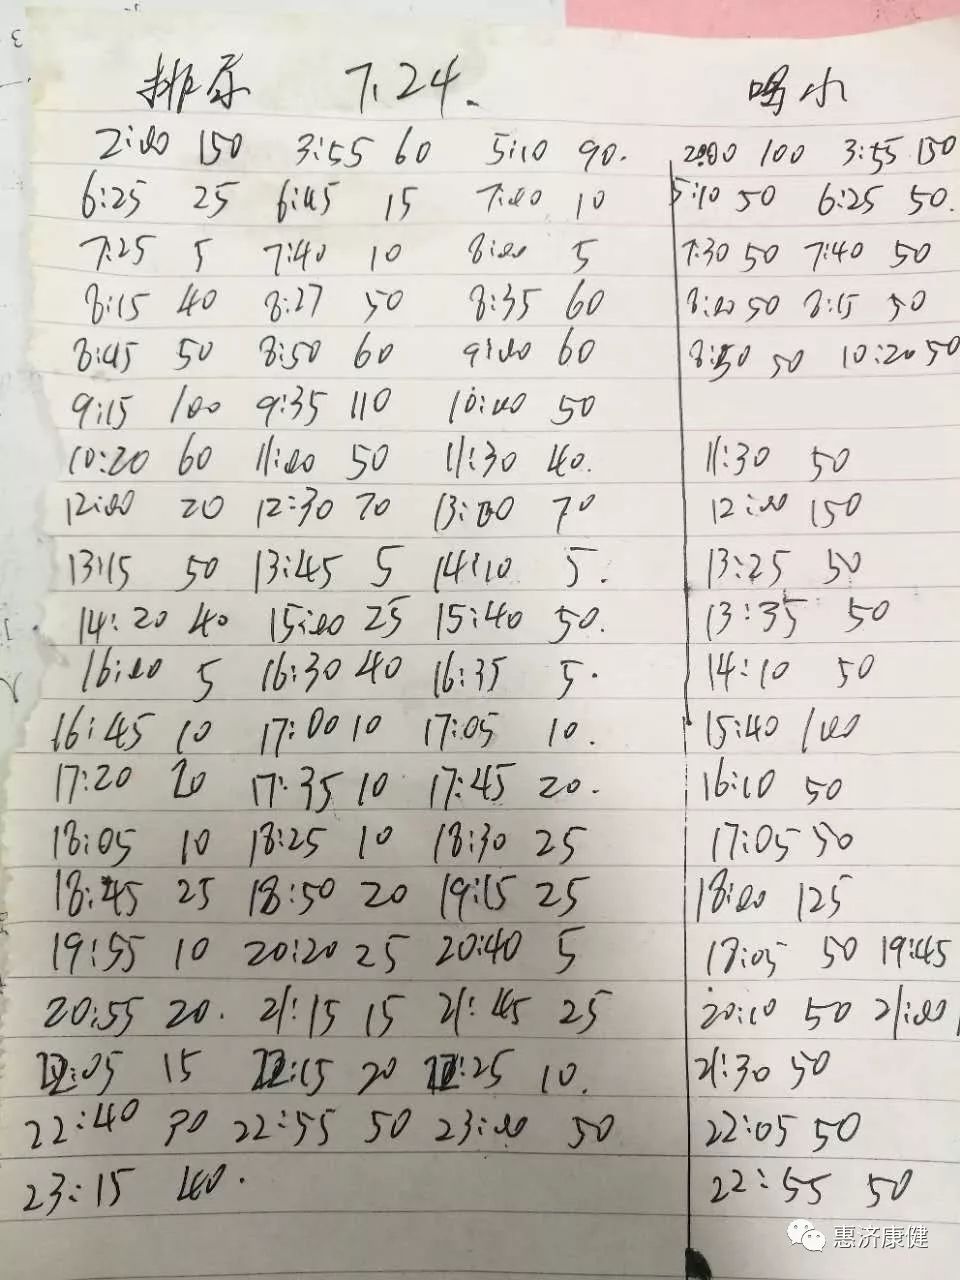 排尿 7.24. 喝水
2:00 150 3:55 60 5:10 90. 2:00 100 3:55 150
6:25 25 6:45 15 7:00 10 5:10 50 6:25 50.
7:25 5 7:40 10 8:00 5 7:30 50 7:40 50
8:15 40 8:27 50 8:35 60 8:00 50 8:15 50
8:45 50 8:50 60 9:00 60 8:50 50 10:20 50
9:15 100 9:35 110 10:00 50
10:20 60 11:00 50 11:30 40. 11:30 50
12:00 20 12:30 70 13:00 70 12:00 150
13:15 50 13:45 5 14:10 5. 13:25 50
14:20 40 15:00 25 15:40 50. 13:35 50
16:00 5 16:30 40 16:35 5. 14:10 50
16:45 10 17:00 10 17:05 10. 15:40 100
17:20 20 17:35 10 17:45 20. 16:10 50
18:05 10 18:25 10 18:30 25 17:05 50
18:45 25 18:50 20 19:15 25 18:00 125
19:55 10 20:20 25 20:40 5 50 19:45
20:55 20. 21:15 15 21:45 25 20:10 50 21:00
22:05 15 22:15 20 22:25 10. 21:30 50
22:40 30 22:55 50 23:00 50 22:05 50
23:15 40. 22:55 50
惠济康健